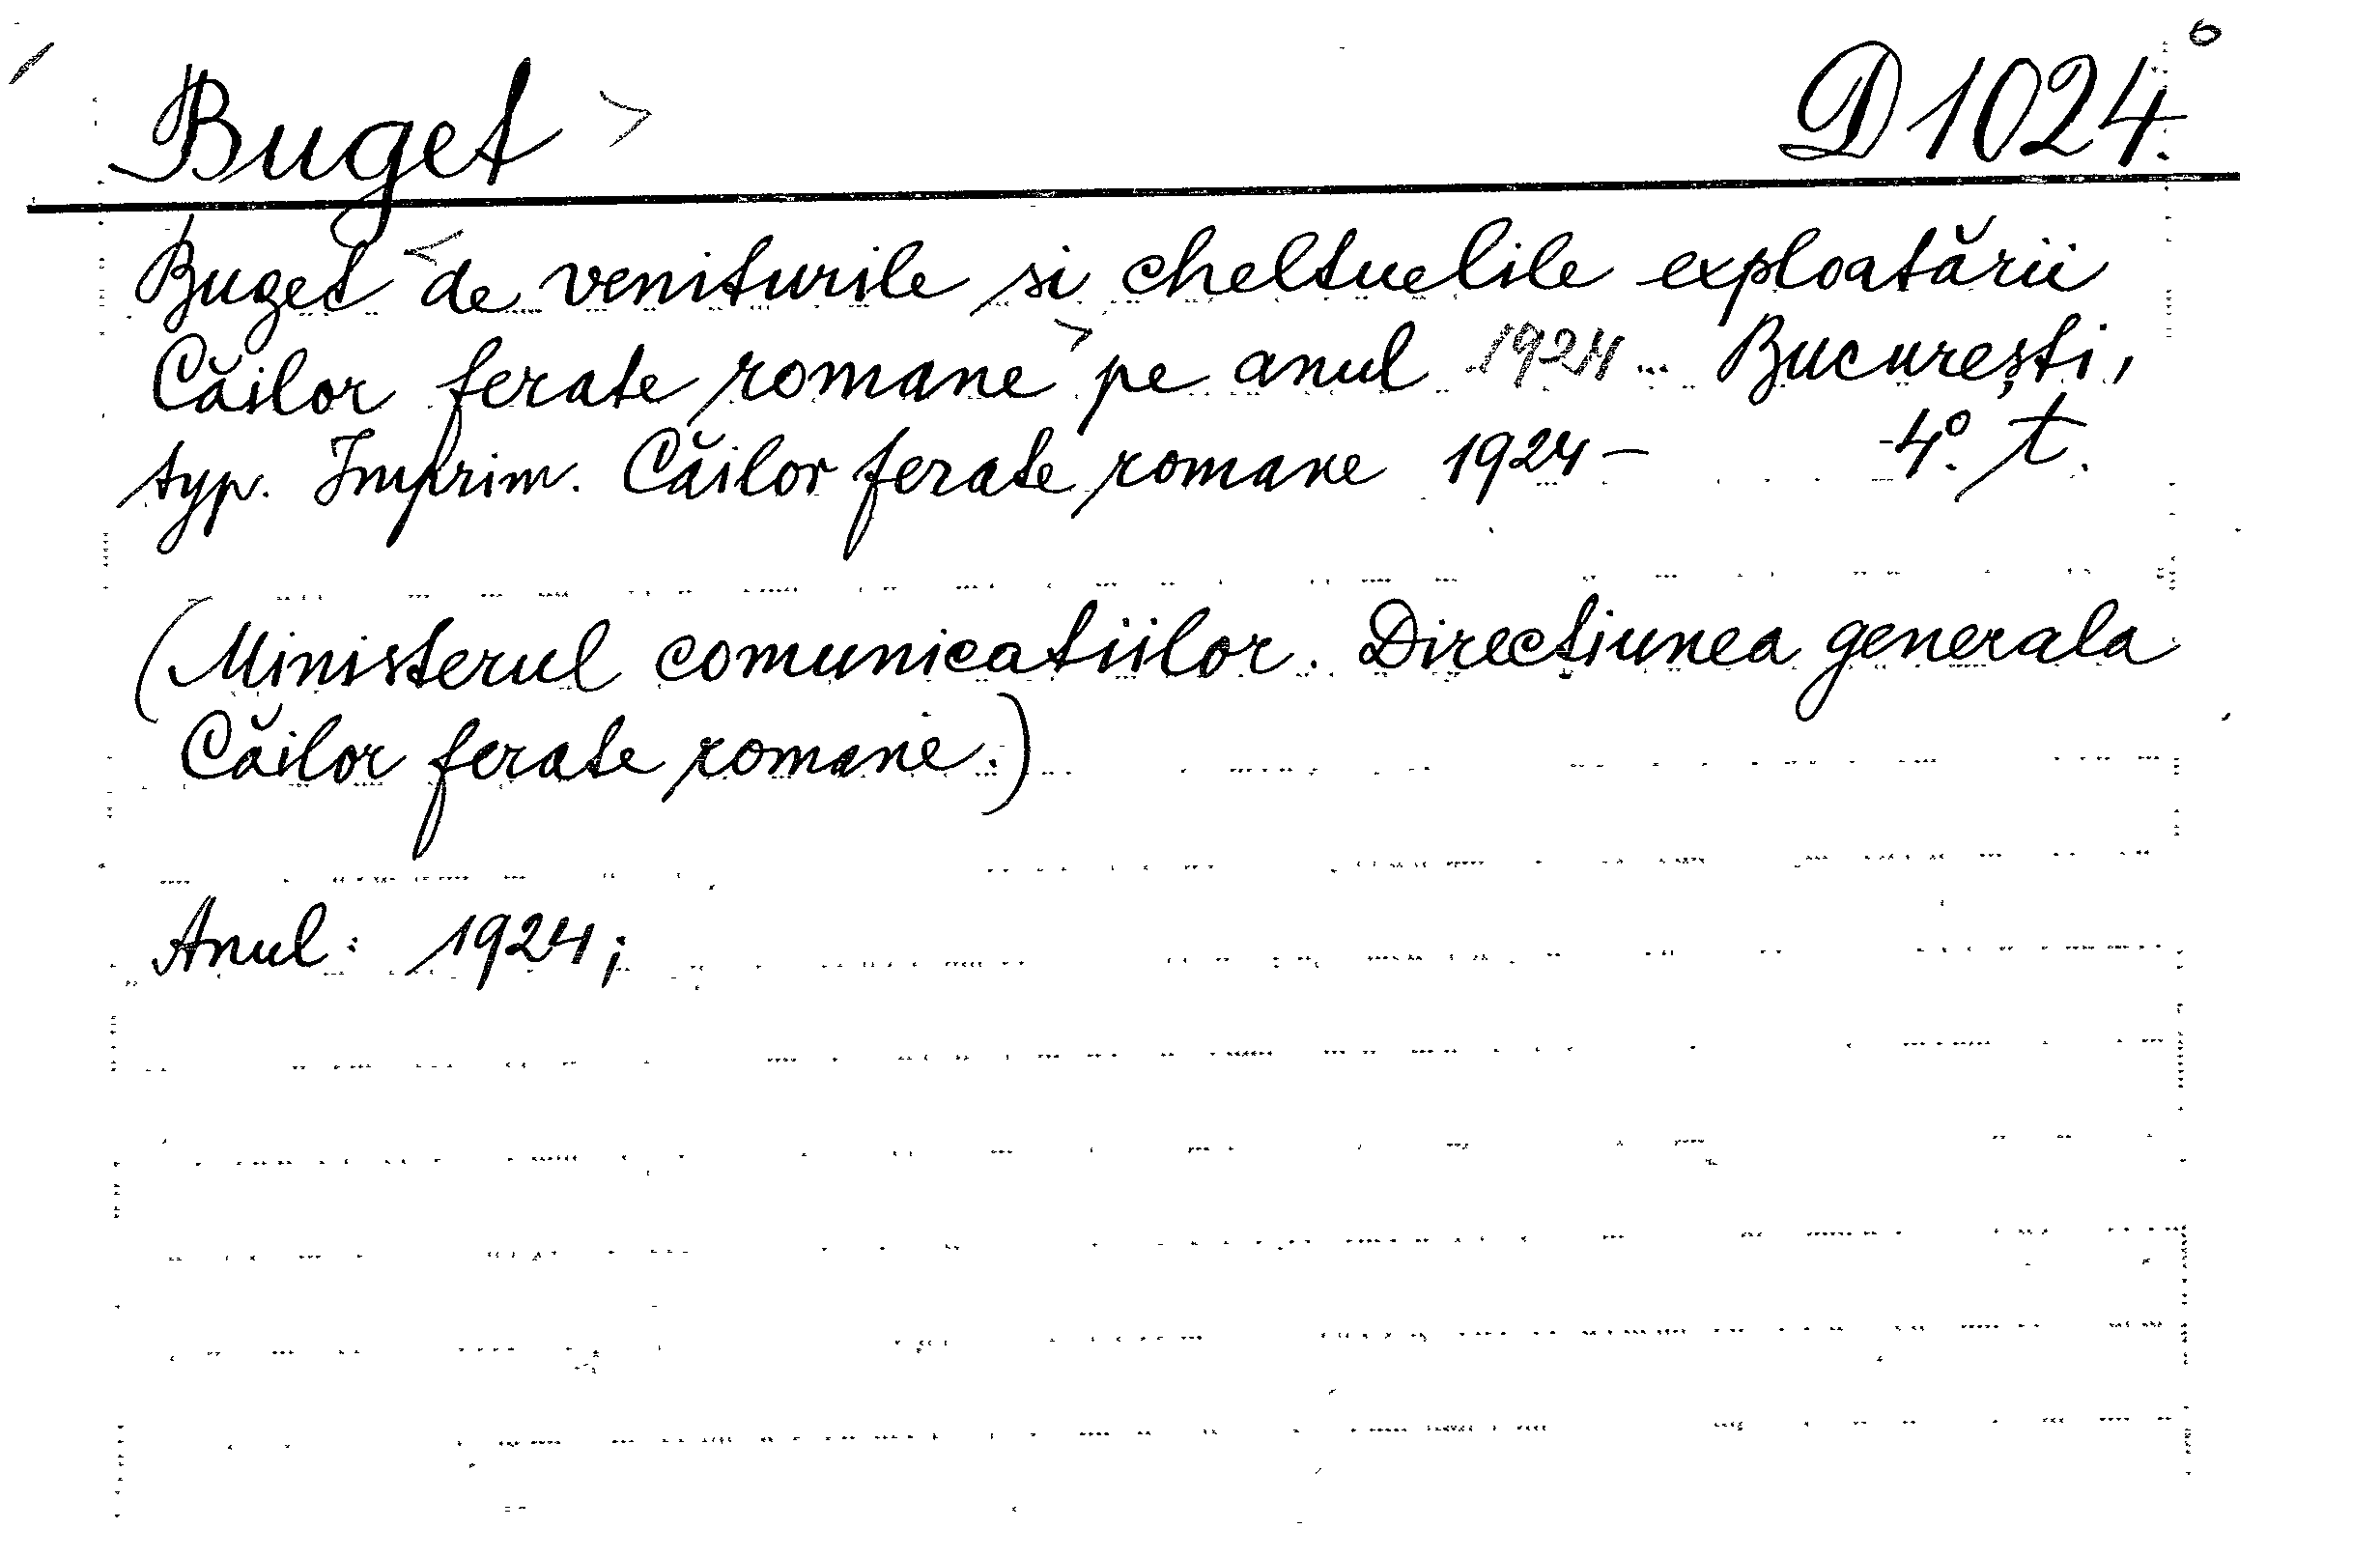 Buget > D 1024.
Buget < de veniturile si cheltuelile exploatării
Căilor ferate romane > pe anul 1924... București,
typ. Imprim. Căilor ferate romane 1924 – 4º. t.
(Ministerul comunicatiilor. Direcțiunea generala
Căilor ferate romane.)
Anul: 1924;